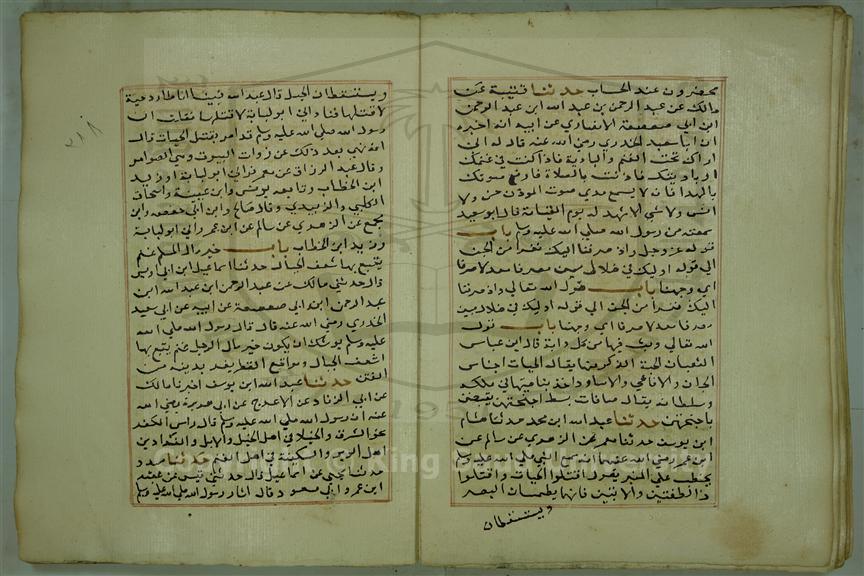 يحضرون عند الحساب حدثنا قتيبة عن
مالك عن عبد الرحمن بن عبد الله ابن عبد الرحمن
ابن ابي صعصعة الانصاري عن ابيه انه اخبره
ان ابا سعيد الخدري رضي الله عنه قال له اني
اراك تحب الغنم والبادية فاذا كنت في غنمك
او باديتك فاذنت بالصلاة فارفع صوتك
بالندا فانه لا يسمع مدي صوت الموذن جن ولا
انس ولا شي الا شهد له يوم القيامة قال ابو سعيد
سمعته من رسول الله صلي الله عليه وسلم باب
قوله عز وجل واذ صرفنا اليك نفرا من الجن
الي قوله اوليك في ضلال مبين مصرفا معدلا صرفنا
اي وجهنا باب قول الله تعالي واذ صرفنا
اليك نفرا من الجن الي قوله اوليك في ضلال مبين
مصرفا معدلا صرفنا اي وجهنا باب قول
الله تعالي وبث فيها من كل دابة قال ابن عباس
الثعبان الحية الذكر منها يقال الحيات اجناس
الجان والافاعي والاساود اخذ بناصيتها في ملكه
وسلطانه يقال صافات بسط اجنحتهن يقبضن
باجنحتهن حدثنا عبد الله ابن محمد حدثنا هشام
ابن يوسف حدثنا معمر عن الزهري عن سالم عن
ابن عمر رضي الله عنهما انه سمع النبي صلي الله عليه وسلم
يخطب علي المنبر يقول اقتلوا الحيات واقتلوا
ذا الطفيتين والابتر فانهما يطمسان البصر
ويستسقطان
٢١٨
ويستسقطان الحبل قال عبد الله فبينا انا اطارد حية
لاقتلها فناداني ابو لبابة لا تقتلها فقلت ان
رسول الله صلي الله عليه وسلم قد امر بقتل الحيات قال
انه نهي بعد ذلك عن ذوات البيوت وهي العوامر
وقال عبد الرزاق عن معمر فراني ابو لبابة او زيد
ابن الخطاب وتابعه يونس وابن عيينة واسحاق
الكلبي والزبيدي وقال صالح وابن ابي حفصه وابن
مجمع عن الزهري عن سالم عن ابن عمر راني ابو لبابة
وزيد ابن الخطاب باب خير مال المسلم غنم
يتبع بها شعف الجبال حدثنا اسماعيل ابن ابي اويس
قال حدثني مالك عن عبد الرحمن ابن عبد الله ابن
عبد الرحمن ابن ابي صعصعة عن ابيه عن ابي سعيد
الخدري رضي الله عنه قال قال رسول الله صلي الله
عليه وسلم يوشك ان يكون خير مال الرجل غنم يتبع بها
شعف الجبال ومواقع القطر يفر بدينه من
الفتن حدثنا عبد الله ابن يوسف اخبرنا مالك
عن ابي الزناد عن الاعرج عن ابي هريرة رضي الله
عنه ان رسول الله صلي الله عليه وسلم قال راس الكفر
نحو المشرق والخيلا في اهل الخيل والابل والفدادين
اهل الوبر والسكينة في اهل الغنم حدثنا مسدد
حدثنا يحيي عن اسماعيل قال حدثني قيس عن عقبه
ابن عمرو ابي مسعود قال اشار رسول الله صلي الله عليه وسلم